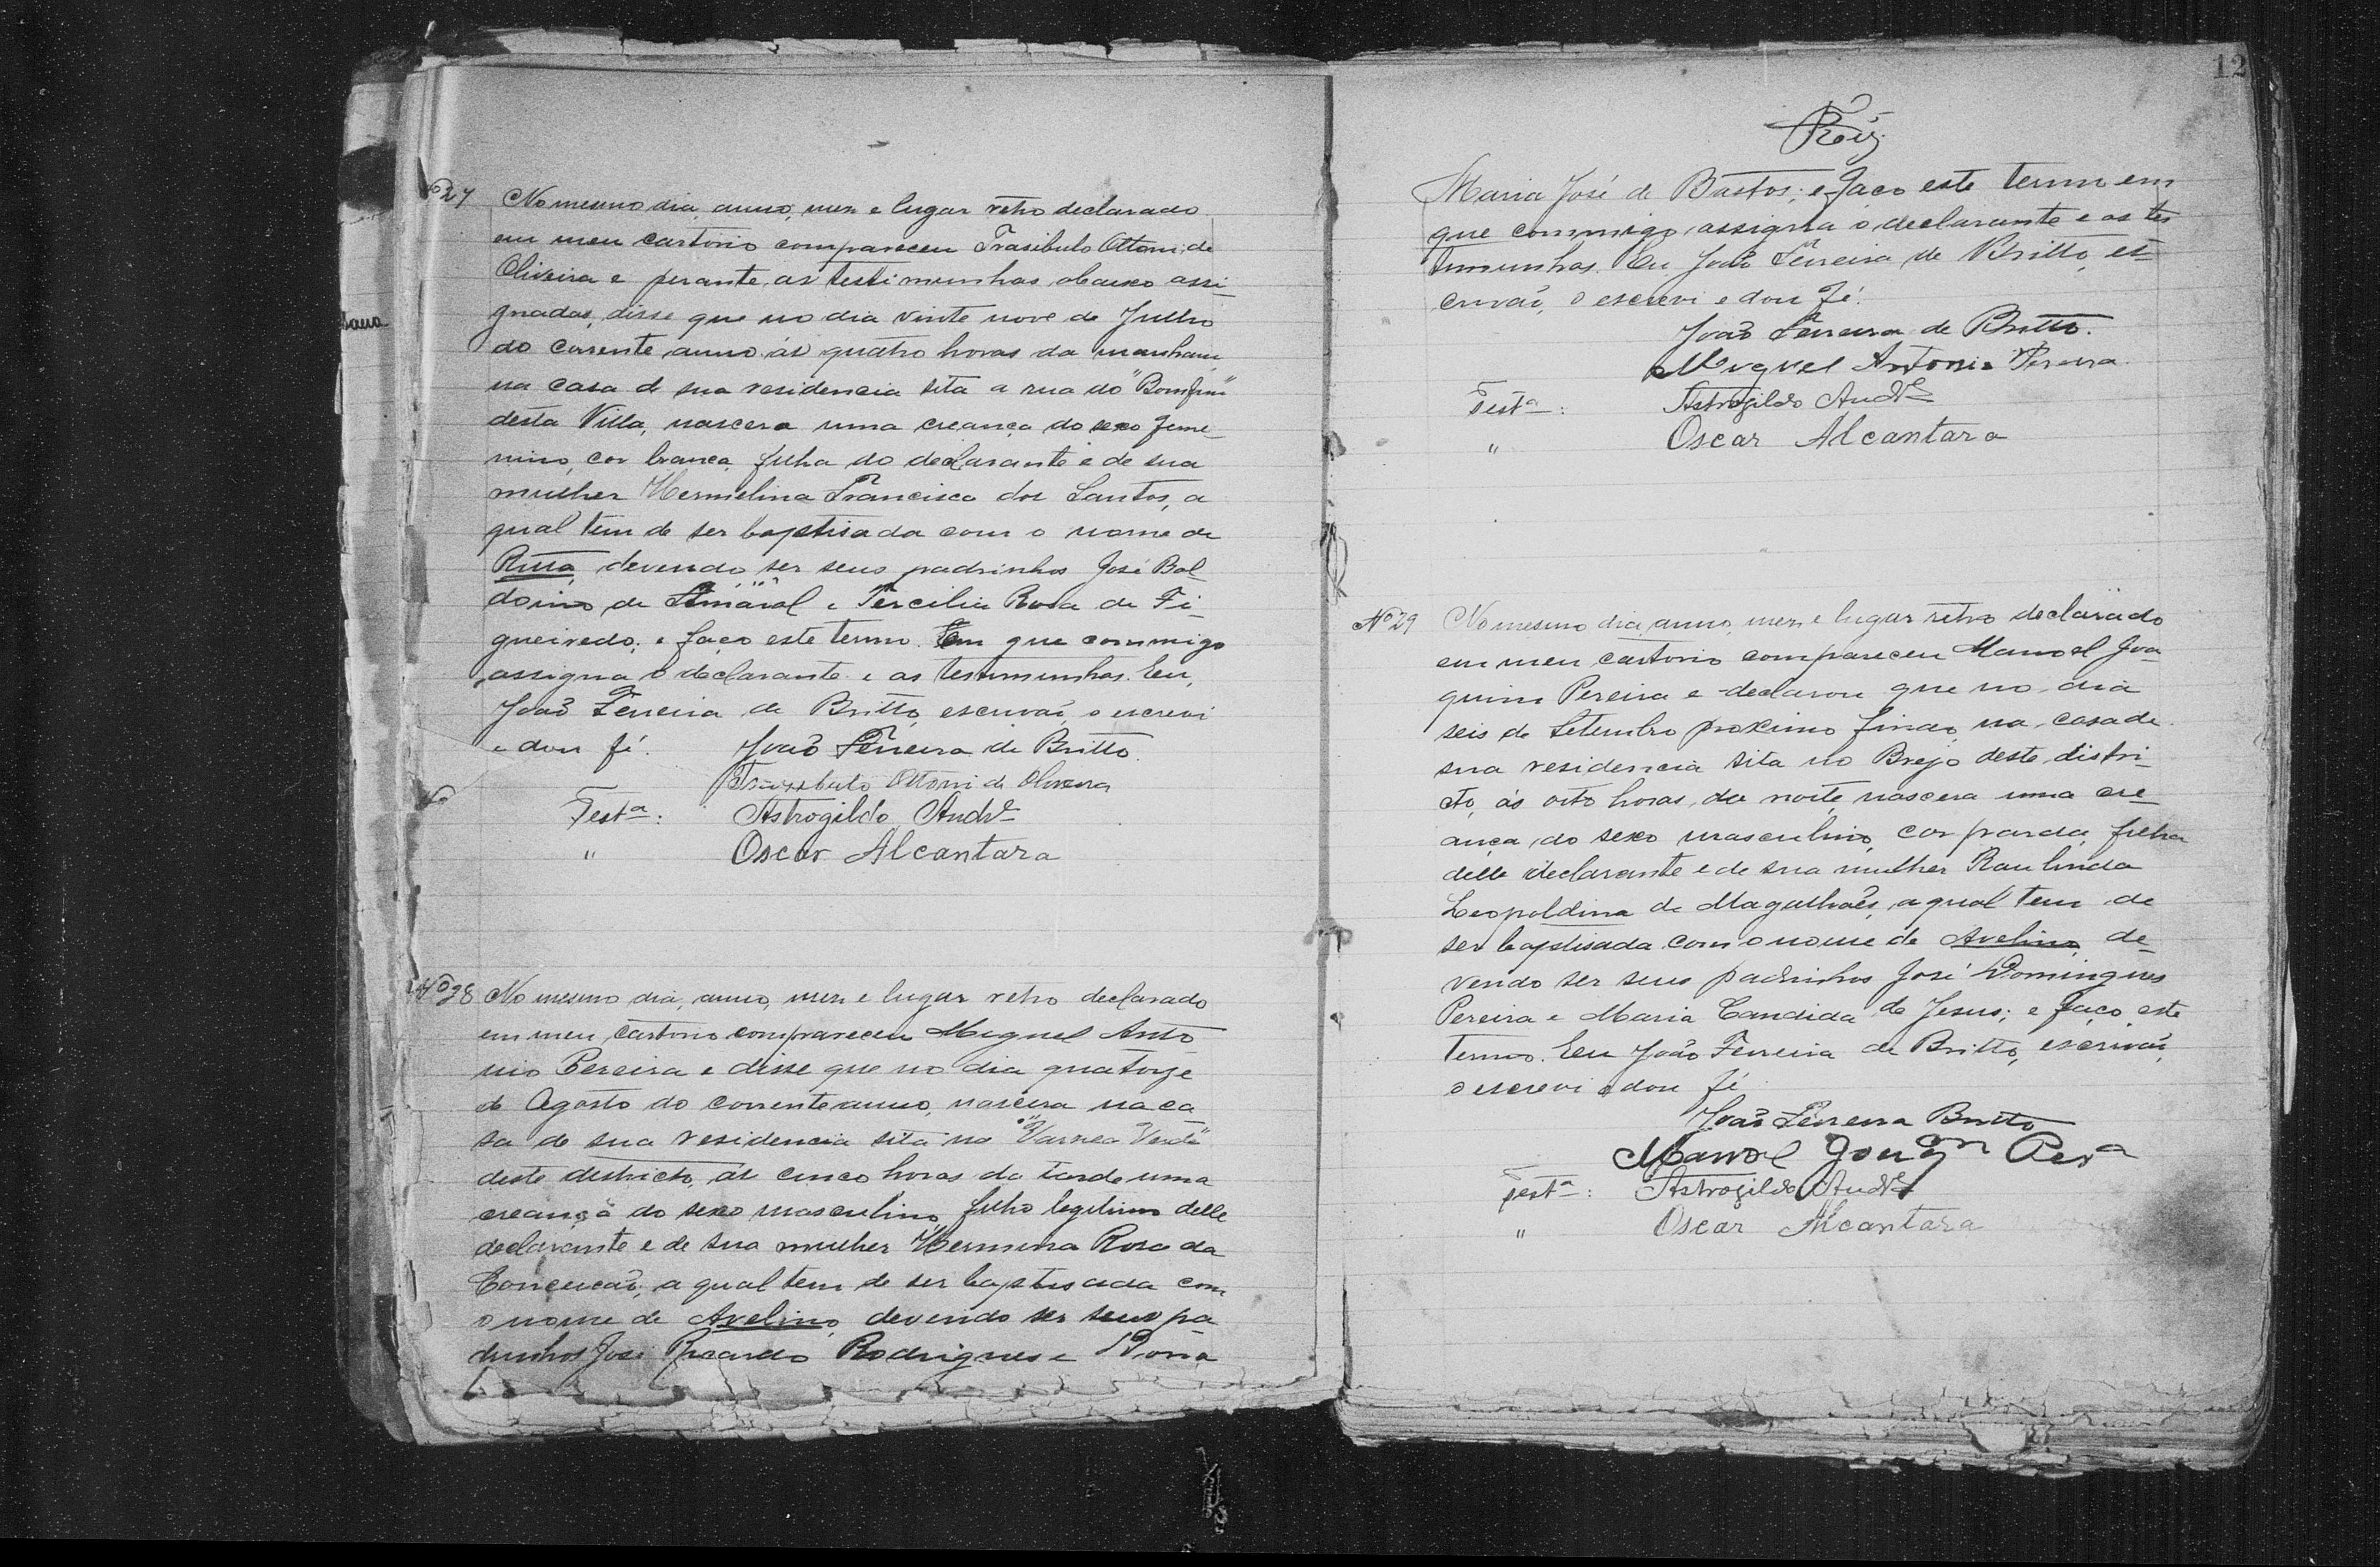 Nº 27 No mesmo dia, anno, mez e lugar retro declarado
em meu cartorio compareceu Trasibulo Ottoni de
Oliveira e perante as testimunhas abaixo assi-
gnadas, disse que no dia vinte nove de Julho
do corente anno ás quatro horas da manham
na casa de sua residencia sita a rua do "Bomfim"
desta Villa, nascera uma creança do sexo feme-
nino, cor branca, filha do declarante e de sua
mulher Hermelina Francisca dos Santos, a
qual tem de ser baptisada com o nome de
Ritta, devendo ser seus padrinhos José Bal-
doino de Amaral e Tercilia Rosa de Fi-
gueiredo; e faço este termo. Em que commigo
assigna o declarante e as testimunhas. Eu,
João Ferreira de Britto, escrivaõ, o escrevi
e dou fé. João Ferreira de Britto.
Ottoni de Oliveira
Testª: Astrogildo Andᵉ
" Oscar Alcantara
Nº 28 No mesmo dia, anno, mez e lugar retro declarado
em meu cartorio compareceu Miguel Anto-
nio Pereira e disse que no dia quatorze
de Agosto do corrente anno, nascera na ca
sa de sua residencia sita na "Varzea Verde"
deste districto, ás cinco horas da tarde uma
creança do sexo masculino, filho legitimo delle
declarante e de sua mulher Hermina Rosa da
Conceicaõ, a qual tem de ser baptisada com
o nome de Avelino, devendo ser seus pa
drinhos José Ricardo Rodrigues e Dona
12
Maria José de Bastos; e faço este termo em
que commigo assigna o declarante e as tes
timunhas. Eu João Ferreira de Britto, es-
crivaõ, o escrevi e dou fé.
João Ferreira de Britto.
Miguel Antonio Pereira.
Testª: Astrogildo Andᵉ
" Oscar Alcantara
Nº 29 No mesmo dia, anno, mez e lugar retro declarado
em meu cartorio compareceu Manoel Joa-
quim Pereira e declarou que no dia
seis de Setembro proximo findo, na casa de
sua residencia sita no Brejo deste distri-
cto, ás oito horas da noite, nascera uma cre-
ança do sexo masculino, cor parda, filha
delle declarante e de sua mulher Raulinda
Leopoldina de Magalhães, a qual tem de
ser baptisada com o nome de Avelino, de-
vendo ser seus padrinhos José Domingues
Pereira e Maria Candida de Jesus; e faço este
termo. Eu João Ferreira de Britto, escrivaõ,
o escrevi e dou fé
João Ferreira Britto
Manoel Joaqᵐ Perª
Testª: Astrogildo Andᵉ
" Oscar Alcantara